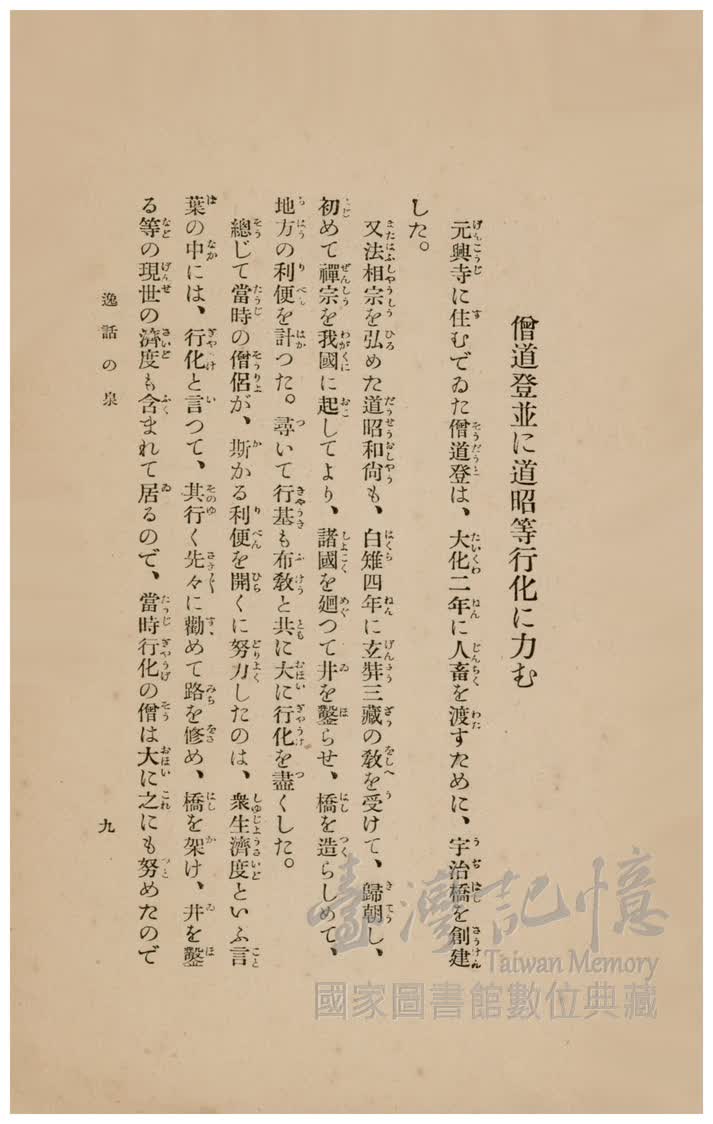 僧道登並に道昭等行化に力む
元興寺に住むでゐた僧道登は、大化二年に人畜を渡すために、宇治橋を創建
した。
又法相宗を弘めた道昭和尙も、白雉四年に玄弉三藏の敎を受けて、歸朝し、
初めて禪宗を我國に起してより、諸國を廻つて井を鑿らせ、橋を造らしめて、
地方の利便を計つた。尋いて行基も布敎と共に大に行化を盡くした。
總じて當時の僧侶が、斯かる利便を開くに努力したのは、衆生濟度といふ言
葉の中には、行化と言つて、其行く先々に勸めて路を修め、橋を架け、井を鑿
る等の現世の濟度も含まれて居るので、當時行化の僧は大に之にも努めたので
逸話の泉
九
臺灣記憶
Taiwan Memory
國家圖書館數位典藏